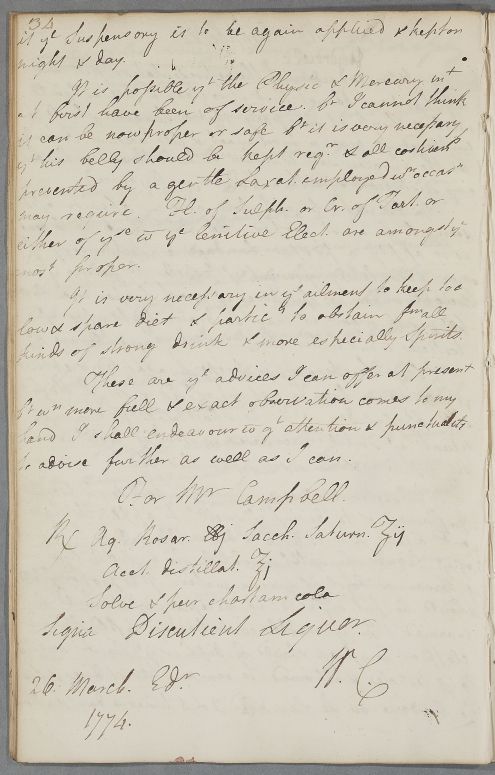 34
if yᵉ Suspensory is to be again applied & kept on
night & day.
It is possible yᵗ the Physic & Mercury
at first have been of service. bᵗ I cannot think
it can be now proper or safe bᵗ it is very necessary
yᵗ his belly should be kept regʳ & all costivenˢ
prevented by a gentle Laxat. employed wⁿ occasⁿ
may require. Fl. of Sulph. or Cr. of Tart. or
either of yˢᵉ wᵗ yᵉ Lenitive Elect. are amongst yᵉ
most proper.
It is very necessary in yˢ ailment to keep to a
low & spare diet & partic. to abstain from all
kinds of strong drink & more especially Spirits.
These are yᵉ advices I can offer at present
bᵗ wⁿ more full & exact observation comes to my
hand I shall endeavour wᵗ attention & punctuality
to advise further as well as I can.
For Mr Campbell.
℞ Aq. Rosar. ℔j Sacch. Saturn. ʒij
Acet. distillat. ℥j
Solve & per chartam cola
Signa Discutient Liquor.
26 March. Edʳ W. C.
1774.